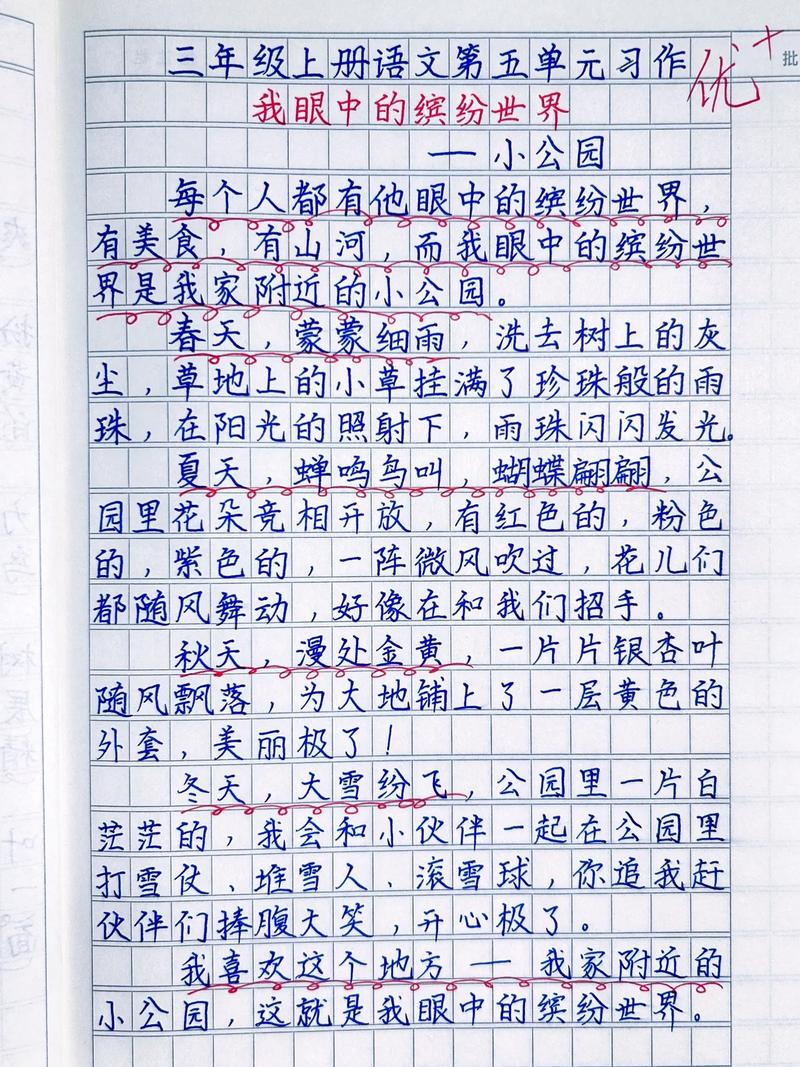 三年级上册语文第五单元习作
优+
批
我眼中的缤纷世界
—小公园
每个人都有他眼中的缤纷世界，
有美食，有山河，而我眼中的缤纷世
界是我家附近的小公园。
春天，蒙蒙细雨，洗去树上的灰
尘，草地上的小草挂满了珍珠般的雨
珠，在阳光的照射下，雨珠闪闪发光。
夏天，蝉鸣鸟叫，蝴蝶翩翩，公
园里花朵竞相开放，有红色的，粉色
的，紫色的，一阵微风吹过，花儿们
都随风舞动，好像在和我们招手。
秋天，漫处金黄，一片片银杏叶
随风飘落，为大地铺上了一层黄色的
外套，美丽极了！
冬天，大雪纷飞，公园里一片白
茫茫的，我会和小伙伴一起在公园里
打雪仗、堆雪人、滚雪球，你追我赶
伙伴们捧腹大笑，开心极了。
我喜欢这个地方—我家附近的
小公园，这就是我眼中的缤纷世界。